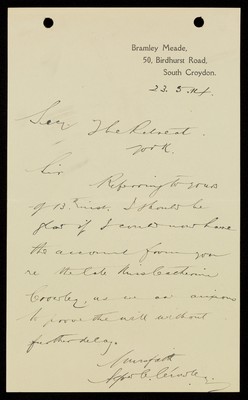 Bramley Meade,
50, Birdhurst Road,
South Croydon.
23. 5. 14.
Secy The Retreat
York.
Sir
Referring to yours
of 13th inst. I should be
glad if I could now have
the account from you
re the late Miss Catherine
Crowley, as we are anxious
to prove the will without
further delay.
Yours faith
Crowley